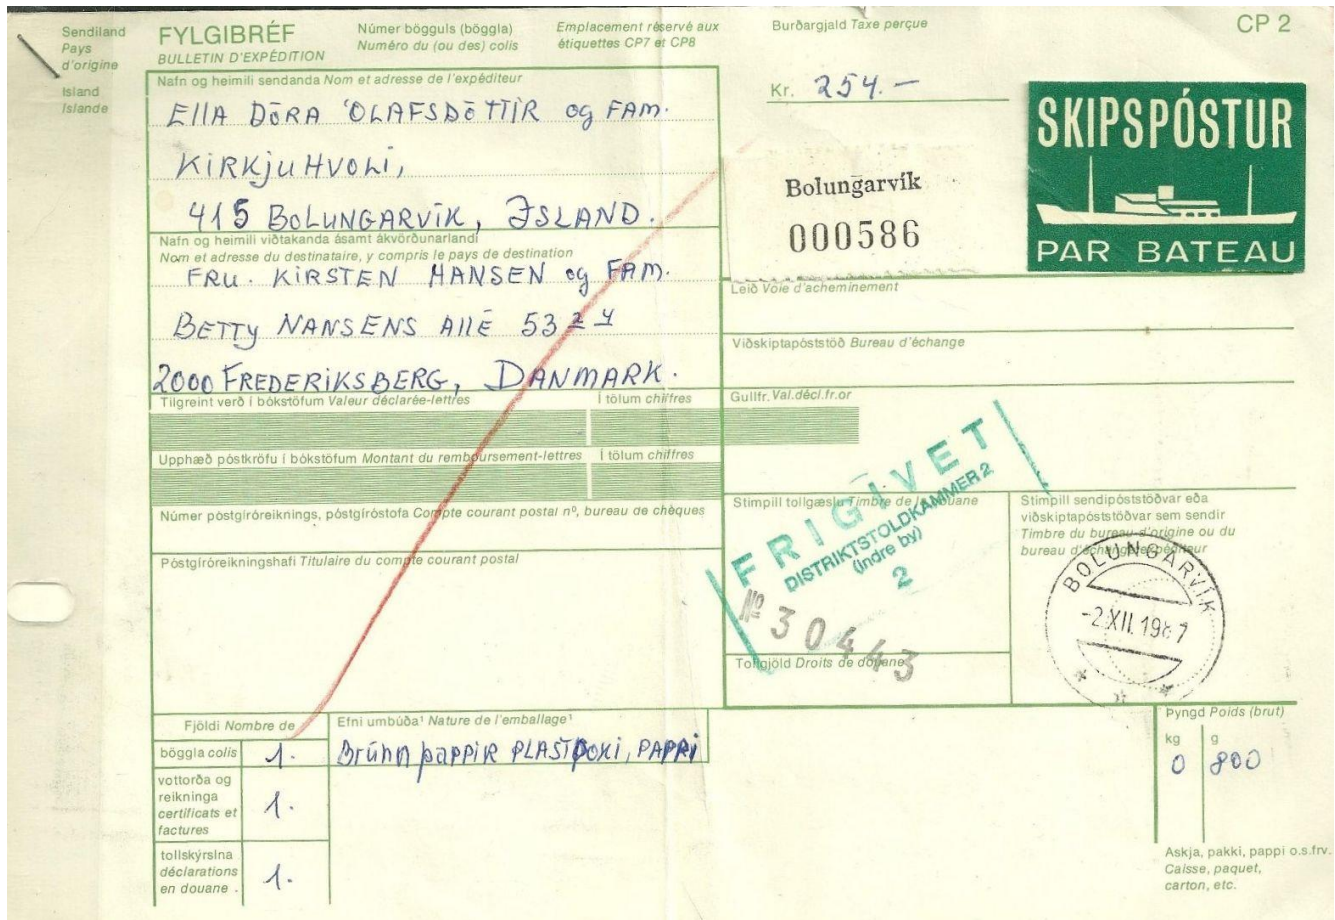 Sendiland
Pays
d'origine
Island
Islande
FYLGIBRÉF
BULLETIN D'EXPÉDITION
Númer bögguls (böggla)
Numéro du (ou des) colis
Emplacement réservé aux
étiquettes CP7 et CP8
Burðargjald Taxe perçue
CP 2
Kr. 254.-
SKIPSPÓSTUR
PAR BATEAU
Bolungarvík
000586
Nafn og heimili sendanda Nom et adresse de l'expéditeur
Ella DÓRA ÓLAFSDÓTTIR og FAM.
KIRKjuHVOLI,
415 BOLUNGARVÍK, ÍSLAND.
Nafn og heimili viðtakanda ásamt ákvörðunarlandi
Nom et adresse du destinataire, y compris le pays de destination
FRU. KIRSTEN HANSEN og FAM.
BETTY NANSENS ALLÉ 53
2000 FREDERIKSBERG, DANMARK.
Leið Voie d'acheminement
Viðskiptapóststöð Bureau d'échange
Tilgreint verð í bókstöfum Valeur déclarée-lettres
Í tölum chiffres
Gullfr. Val.décl.fr.or
Upphæð póstkröfu í bókstöfum Montant du remboursement-lettres
Í tölum chiffres
Númer póstgíróreiknings, póstgíróstofa Compte courant postal nº, bureau de chèques
Póstgíróreikningshafi Titulaire du compte courant postal
Stimpill tollgæslu Timbre de la douane
FRIGIVET
DISTRIKTSTOLDKAMMER 2
(indre by)
2
№ 30443
Tollgjöld Droits de douane
Stimpill sendipóststöðvar eða
viðskiptapóststöðvar sem sendir
Timbre du bureau d'origine ou du
bureau d'échange expéditeur
BOLUNGARVÍK
-2.XII.1987
Fjöldi Nombre de
böggla colis 1.
vottorða og
reikninga
certificats et
factures
1.
tollskýrslna
déclarations
en douane .
1.
Efni umbúða¹ Nature de l'emballage¹
Brúnn pappir PLASTpoki, PAPPI
Þyngd Poids (brut)
kg g
0 800
Askja, pakki, pappi o.s.frv.
Caisse, paquet,
carton, etc.